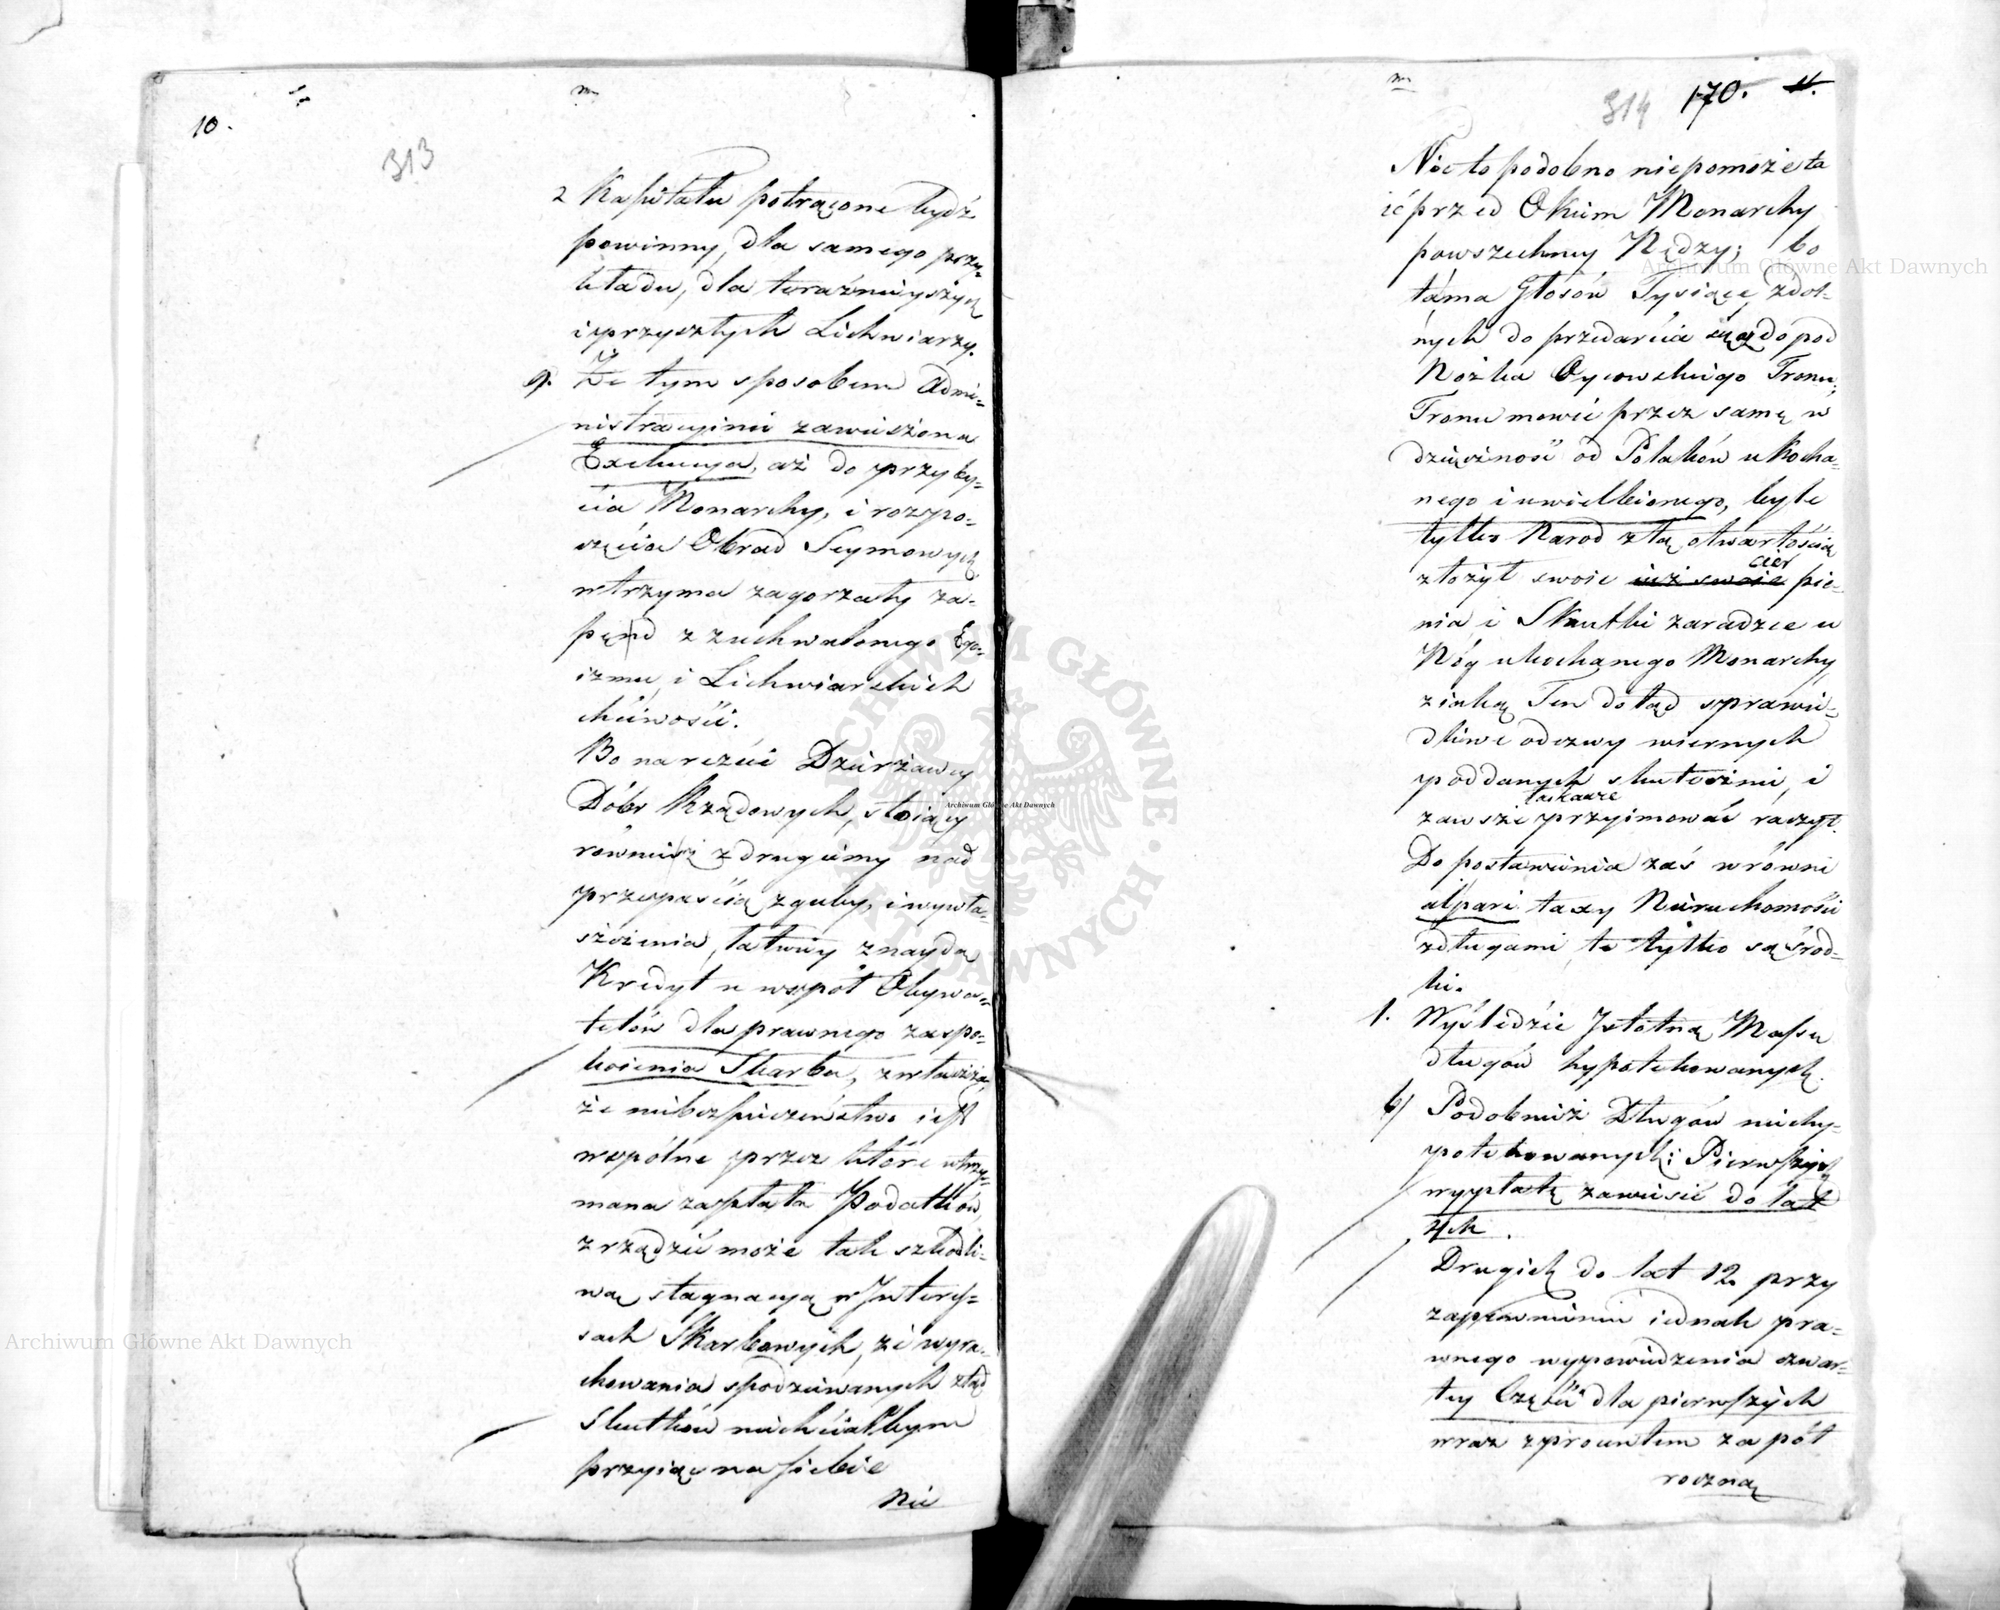 10.
313
z Kapitału potrącone bydź
powinny, dla samego przy-
kładu, dla teraźnieyszych
i przyszłych Lichwiarzy.
9. Że tym sposobem Admi-
nistracyinie zawieszona
Exekucya, aż do przyby-
cia Monarchy, i rozpo-
częcia Obrad Seymowych
wtrzyma zagorzały za-
pęd z zuchwalonego Ego-
izmu i Lichwiarskich
chciwości.
Bo nareście Dzierżawcy
Dóbr Rządowych, stoiący
równiesz z drugiemy nad
przepaścią zguby, i wywła-
szczenia, łatwiey znaydą
Kredyt u współ Obywa-
telów dla prawnego zaspo-
koienia Skarbu, zwłaszcza
że niebezpieczeństwo iest
wspólne przez które utrzy-
mana zapłata Podatków,
zrządzić może tak szkodli-
wą stagnacyą w Interes-
sach Skarbowych, że wyra-
chowania spodziewanych ztąd
Skutków niechciałbym
przyiąć na siebie
Nie
314 170. 11.
Nic to podobno niepomoże ta
ić przed Okiem Monarchy
powszechney Nędzy; bo
táma Głosów Tysiące zdol-
nych do przedarcia się do pod
Nóżka Oycowskiego Tronu,
Tronu mowić przez samę w
dzięczność od Polaków ukocha-
nego i uwielbionego, byle
tylko Narod z tą otwartością
cier
złożył swoie iuż swoie pie-
nia i Skutki zaradzce u
Nóg ukochanego Monarchy
z iaką Ten dotąd sprawie-
dliwe odezwy wiernych
poddanych skutecznie, i
łaskawie
zawsze przyimować raczył.
Do postawienia zaś w równi
alpari taxy Nieruchomości
z długami, te tylko są środ-
ki.
1. Wyśledzić Istotną Massę
długów hypotekowanych.
b) Podobnież Długów niehy-
potekowanych; Pierwszych
wypłatę zawiesić do lat
4ch.
Drugich do lat 12. przy
zapewnieniu iednak pra-
wnego wypowiedzenia czwar-
tey Części dla pierwszych
wraz z procentem za pół
roczną
Archiwum Główne Akt Dawnych
Archiwum Główne Akt Dawnych
Archiwum Główne Akt Dawnych
ARCHIWUM GŁÓWNE AKT DAWNYCH